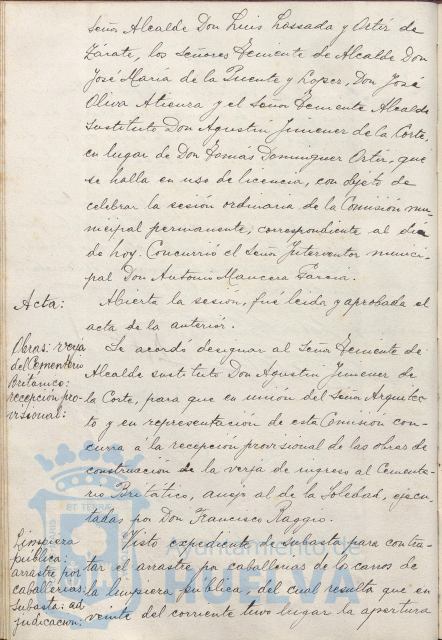 Señor Alcalde Don Luis Lossada y Ortiz de
Zárate, los Señores Teniente de Alcalde Don
José María de la Puente y Lopez, Don José
Oliva Atienza y el Señor Teniente Alcalde
Sustituto Don Agustin Jimenez de la Corte,
en lugar de Don Tomás Dominguez Ortiz, que
se halla en uso de licencia, con objeto de
celebrar la sesión ordinaria de la Comisión mu-
nicipal permanente, correspondiente al dia
de hoy. Concurrió el Señor Interventor munici-
pal Don Antonio Mancera Garcia.
Acta:
Abierta la sesion, fué leida y aprobada el
acta de la anterior.
Obras: verja
del Cementerio
Britanico:
recepción pro-
visional:
Se acordó designar al Señor Teniente de
Alcalde sustituto Don Agustin Jimenez de
la Corte, para que en unión del Señor Arquitec-
to y en representación de esta Comisión con-
curra á la recepción provisional de las obras de
construcción de la verja de ingreso al Cemente-
rio Britático, anejo al de la Soledad, ejecu-
tadas por Don Francisco Raggio.
Limpieza
pública:
arrastre por
caballerias.
Subasta: ad
judicación:
Visto expediente de subasta para contra-
tar el arrastre por caballerias de los carros de
la limpieza pública, del cual resulta que en
veinte del corriente tuvo lugar la apertura
ET TERRAE
Ayuntamiento de
HUELVA